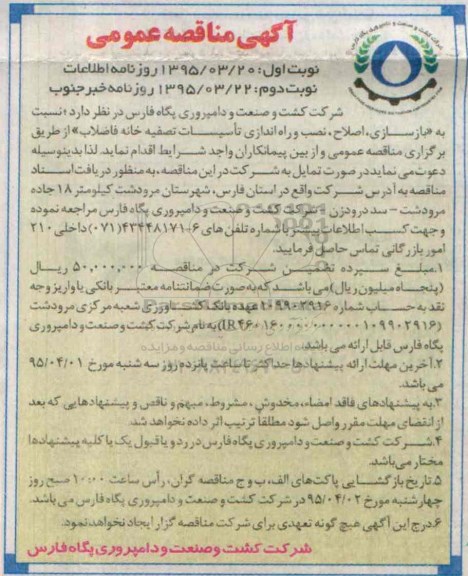 آگهی مناقصه عمومی
نوبت اول: ۱۳۹۵/۰۳/۲۰ روزنامه اطلاعات
نوبت دوم: ۱۳۹۵/۰۳/۲۲ روزنامه خبر جنوب
شرکت کشت و صنعت و دامپروری پگاه فارس در نظر دارد؛ نسبت
به «بازسازی، اصلاح، نصب و راه اندازی تأسیسات تصفیه خانه فاضلاب» از طریق
برگزاری مناقصه عمومی و از بین پیمانکاران واجد شرایط اقدام نماید. لذا بدینوسیله
دعوت می نماید در صورت تمایل به شرکت در این مناقصه، به منظور دریافت اسناد
مناقصه به آدرس شرکت واقع در استان فارس، شهرستان مرودشت کیلومتر ۱۸ جاده
مرودشت - سد درودزن - شرکت کشت و صنعت و دامپروری پگاه فارس مراجعه نموده
و جهت کسب اطلاعات بیشتر با شماره تلفن های ۶-۴۳۴۴۸۱۷۱ (۰۷۱) داخلی ۲۱۰
امور بازرگانی تماس حاصل فرمایید.
۱.مبلغ سپرده تضمین شرکت در مناقصه ۵۰,۰۰۰,۰۰۰ ریال
(پنجاه میلیون ریال) می باشد که به صورت ضمانتنامه معتبر بانکی یا واریز وجه
نقد به حساب شماره ۱۰۹۹۰۲۹۱۶ عهده بانک کشاورزی شعبه مرکزی مرودشت
به نام شرکت کشت و صنعت و دامپروری
پگاه فارس قابل ارائه می باشد.
۲.آخرین مهلت ارائه پیشنهادها حداکثر تا ساعت پانزده روز سه شنبه مورخ ۹۵/۰۴/۰۱
می باشد.
۳.به پیشنهادهای فاقد امضاء، مخدوش، مشروط، مبهم و ناقص و پیشنهادهایی که بعد
از انقضای مهلت مقرر واصل شود مطلقا ترتیب اثر داده نخواهد شد.
۴.شرکت کشت و صنعت و دامپروری پگاه فارس در رد و یا قبول یک یا کلیه پیشنهادها
مختار می باشد.
۵.تاریخ بازگشایی پاکت های الف، ب و ج مناقصه گران، رأس ساعت ۱۰:۰۰ صبح روز
چهارشنبه مورخ ۹۵/۰۴/۰۲ در شرکت کشت و صنعت و دامپروری پگاه فارس می باشد.
۶.درج این آگهی هیچ گونه تعهدی برای شرکت مناقصه گزار ایجاد نخواهد نمود.
شرکت کشت و صنعت و دامپروری پگاه فارس